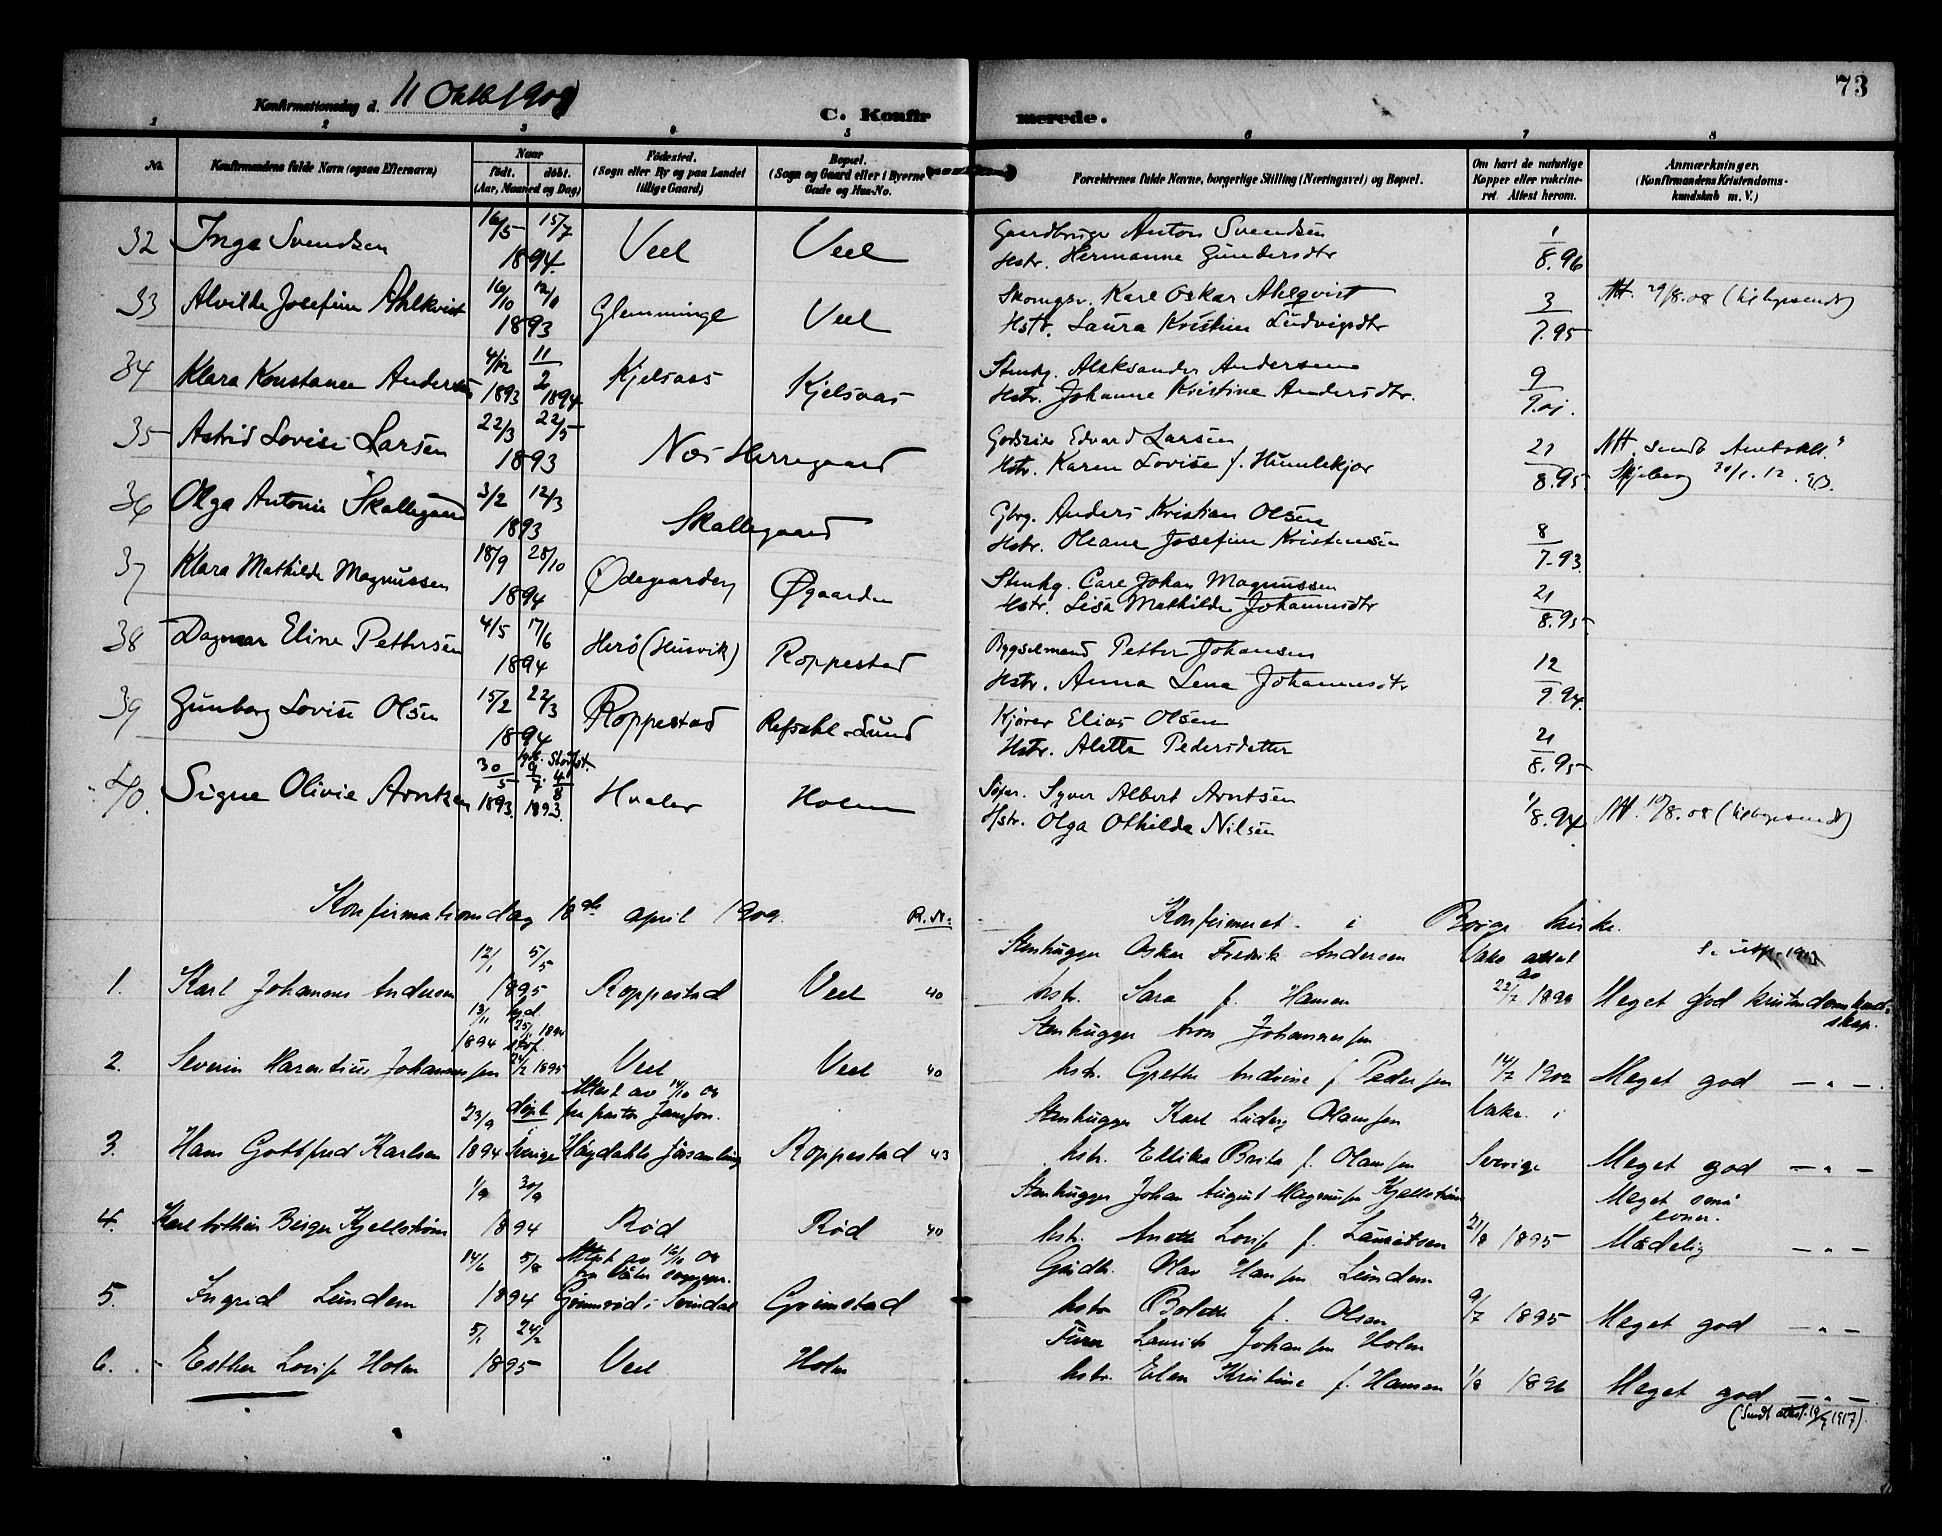 73
Konfirmationsdag d. 11 Oktb 1908
C. Konfirmerede.
1 2 3 4 5 6 7 8
No. Konfirmandens fulde Navn (ogsaa Efternavn) Naar født. døbt. (Aar, Maaned og Dag) Fødested. (Sogn eller By og paa Landet tillige Gaard) Bopæl. (Sogn og Gaard eller i Byerne Gade og Hus-No. Forældrenes fulde Navne, borgerlige Stilling (Næringsvei) og Bopæl. Om havt de naturlige Kopper eller vakcineret. Attest herom. Anmærkninger. (Konfirmandens Kristendomskundskab m. V.)
32 Inga Svendsen 16/5 15/7 1894 Veel Veel Gaardbruger Anton Svendsen 1/8.96
Hstr. Hermanne Gundersdtr
33 Alvilde Josefine Ahlkvist 16/10 12/11 1893 Glemminge Veel Karl Oskar Ahlqvist 3/7.95 Att. 29/8.08 (
Hstr. Laura Kristine Ludvigsdtr
34 Klara Konstance Andersen 4/12 1893 11/2 1894 Kjelsaas Kjelsaas Stenhg. Aleksander Andersen 9/9.01.
Hstr. Johanne Kristine Andersdtr.
35 Astrid Lovise Larsen 22/3 22/5 1893 Nes Herregaard Godseier Edvard Larsen 21/8.95 Att. sendt
Hstr. Karen Lovise f. Skjeberg 30/1.12.
36 Olga Antonie Skallegaard 3/2 12/3 1893 Skallegaard Gbrg. Anders Kristian Olsen 8/7-93
Hstr. Oleane Josefine Kristensen
37 Klara Mathilde Magnussen 18/9 28/10 1894 Ødegaarden Øgaarden Stenhg. Carl Johan Magnussen 21/8.95
Hstr. Lisa Mathilde Johannesdtr
38 Dagmar Eline Pettersen 4/5 17/6 1894 Herø (Husvik) Roppestad Bygselmand Petter Johansen 12/9.94
Hstr. Anna Lena Johannesdtr
39 Gunborg Lovise Olsen 15/2 22/3 1894 Roppestad Refsahl-Lund Kjører Elias Olsen 21/8.95
Hstr. Aletta Pedersdatter
40. Signe Olivie Arntsen 30/5 1893. 9/7. 4/8 1893. Hvaler Holm Syver Albert Arntsen 1/8.94 Att. 10/8.08 (
Hstr. Olga Othilda Nilsen
Konfirmationsdag 18de april 1909. R.N: Konfirmeret i Borge kirke.
1. Karl Johannes Andersen 12/1 5/5 1895 Roppestad Veel 40 Stenhugger Oskar Fredrik Andersen Vaks attest
hstr. Sara f. Hansen Meget god kristendomskundskap.
2. Severin Marentius Johannessen 13/11 1894 25/11 1894 24/2 1895 Veel Veel 40 Stenhugger Aron Johannessen
hstr. Grethe Andrine f. Pedersen 14/7 1902 Meget god — " —.
3. Hans Gottfred Karlsen 23/9 1894 døpt i Sverige Attest av 14/10 08 fra pastor Högdahls församling Roppestad 43 Stenhugger Karl Ludvig Olaussen Vaks. i
hstr. Ellika Brita f. Olaussen Sverige Meget god — " —
4. Karl Birger Kjellstrøm 1/9 30/9 1894 Rød Rød 40 Stenhugger Johan August Magnussen Kjellstrøm Meget små evner.
hstr. Anette Lovise f. Lauritsen 21/8 1895 Mådelig — " —
5. Ingrid Lundem 14/6 5/8 1894 Attest av 12/10 08 Grimsrød i Svindal Grimstad Gårdbr. Olav Hansen Lundem
hstr Bolette f. Olsen 9/7 1895 Meget god — " —
6. Esther Lovise Holm 5/1 24/2 1895 Veel Holm Laurits Johansen Holm
hstr. Elen Kristine f. Hansen 1/8 1896 Meget god — " —
(Sendt attest 1917).